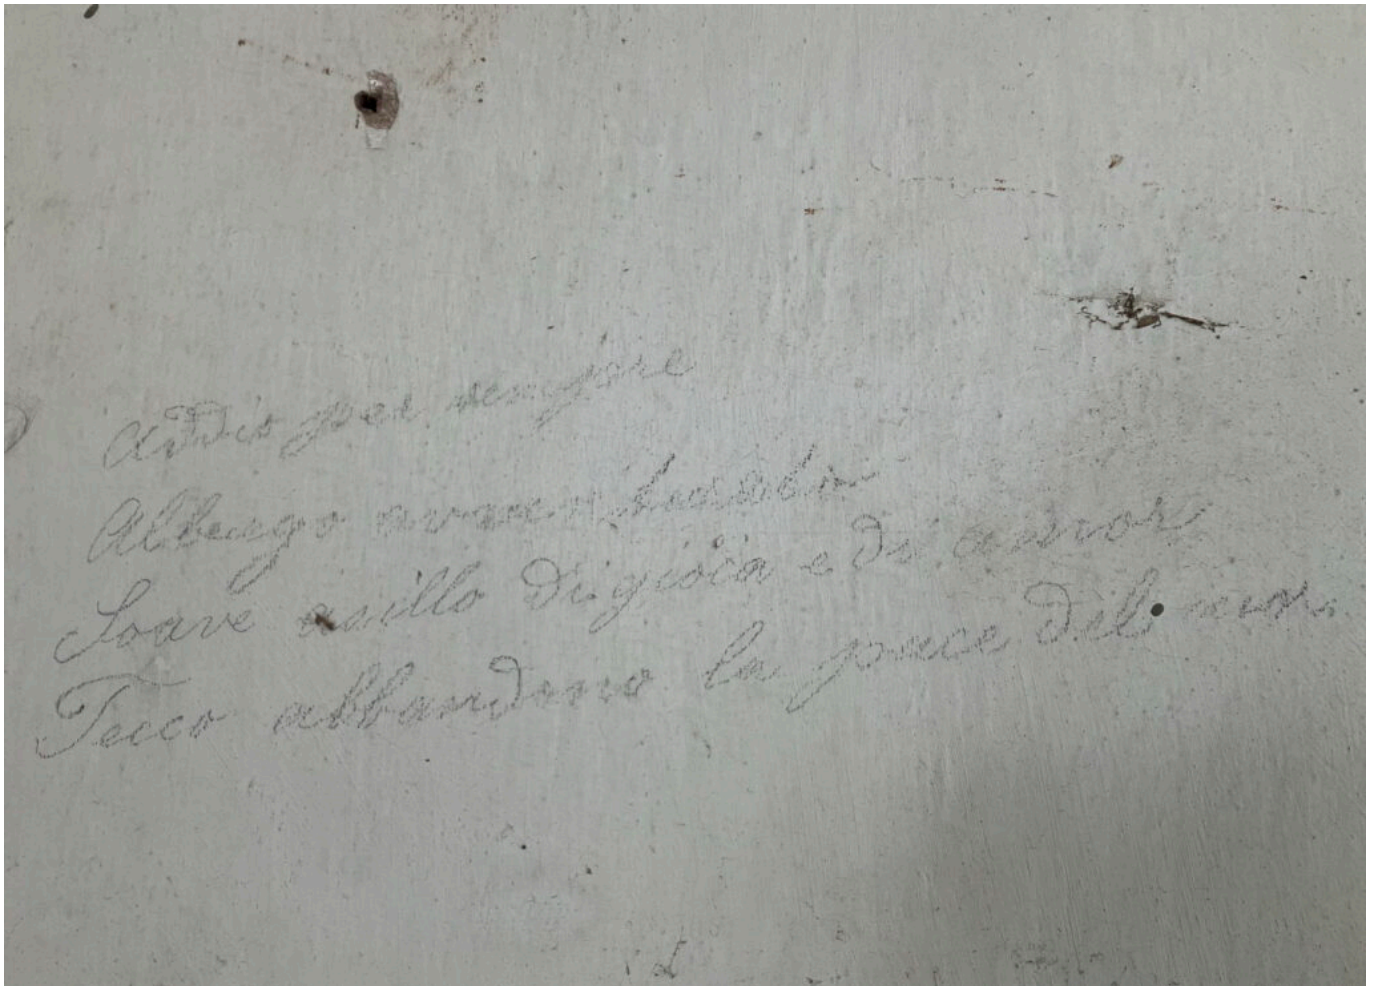 Addio per sempre
Albergo avventurato
Soave asillo di gioia e di amor
Tecco abbandono la pace del cor